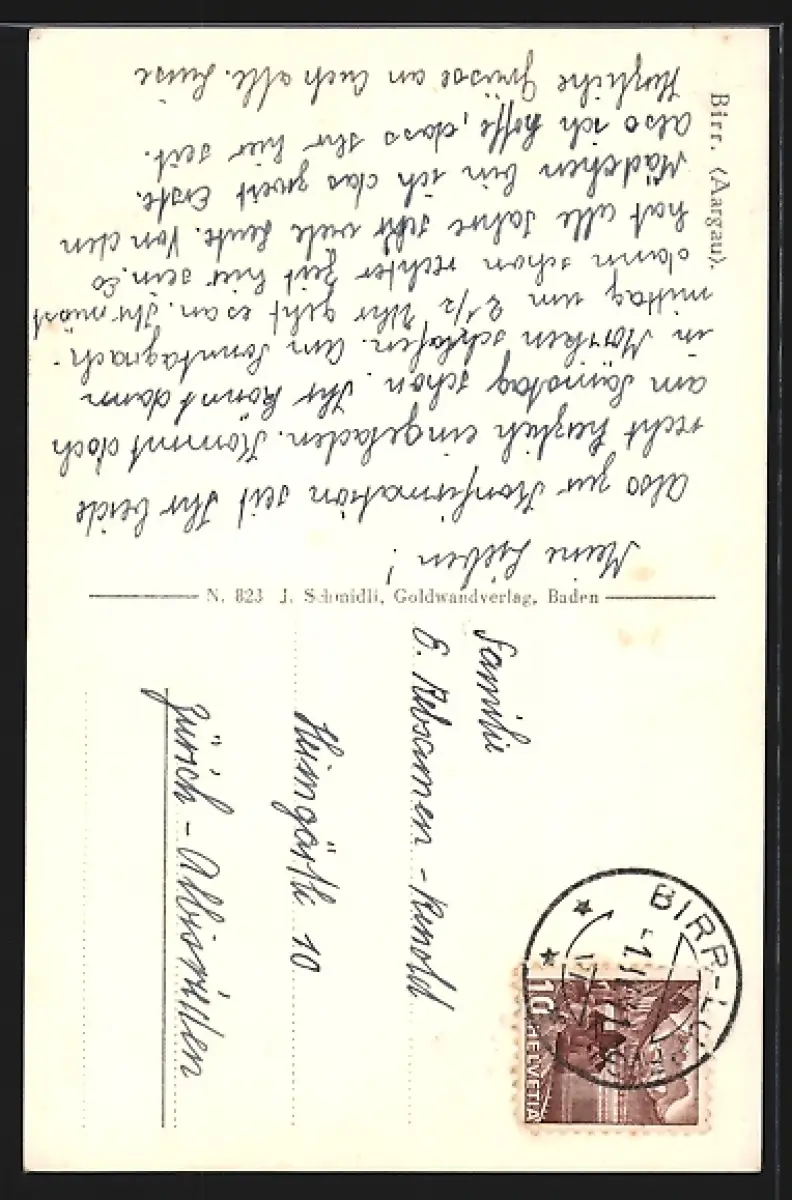 Birr. (Aargau).
Meine Lieben!
Also zur Konfirmation seit Ihr beide
recht herzlich eingeladen. Kommt doch
am Samstag schon. Ihr könnt dann
in schlafen. Am Sonntagnach-
mittag um 2 1/2 Uhr geht es an. Ihr müsst
dann schon rechter Zeit hier sein. Es
hat alle Jahre sehr viele Leute. Von den
Mädchen bin ich das zweit Erste.
Also ich hoffe, dass Ihr hier seit.
Herzliche Grüsse an Euch alle. Luise
N. 823 J. Schmidli, Goldwandverlag, Baden
Familie
Rebsamen-Renold
Heimgärtli 10
Zürich-Albisrieden
BIRR-LU
10
HELVETIA